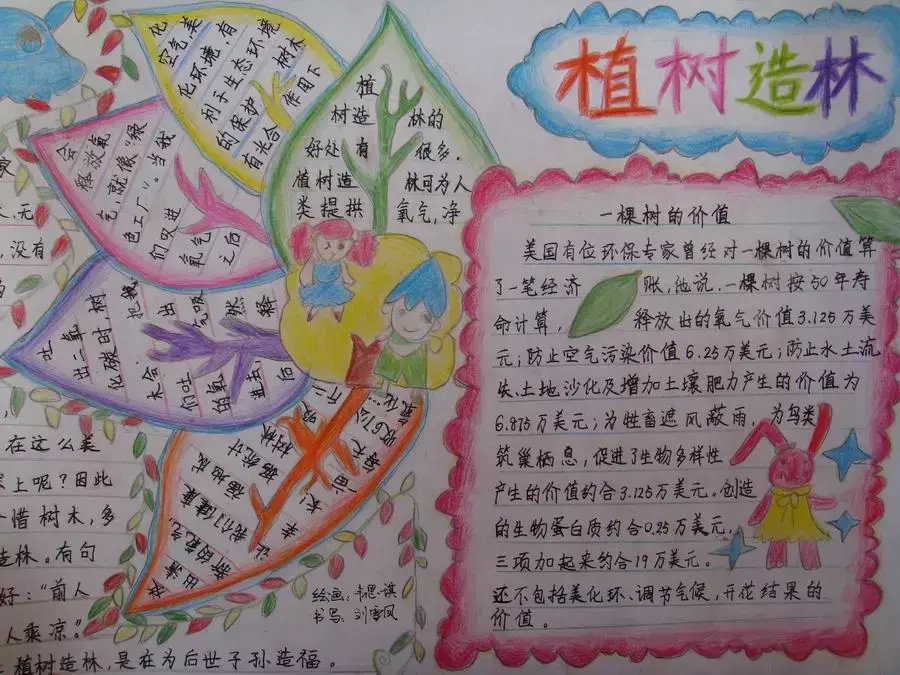 植树造林
植
树造 林的
好处有 很多.
植树造 林可为人
类提拱 氧气,净
化
空气,美
化环境,有
利于生态环境
的保护,树木
有光合 作用下
会
释放氧
气,就像“绿
色工厂”。当我
们吸进 氧气
之后
吐
出二氧
化碳时,树
木会 把我
们吐 出
的氧 气吸
进去, 然
后 释
放
出清
新的氧气,
让我们健康
幸 福地成
据统计
一亩 树林
每天
一棵树的价值
美国有位环保专家曾经对一棵树的价值算
了一笔经济 账,他说.一棵树按50年寿
命计算, 释放出的氧气价值3.125万美
元;防止空气污染价值6.25万美元;防止水土流
失、土地沙化及增加土壤肥力产生的价值为
6.875万美元;为牲畜遮风蔽雨,为鸟类
筑巢栖息,促进了生物多样性
产生的价值约合3.125万美元。创造
的生物蛋白质约合0.25万美元,
三项加起来约合19万美元。
还不包括美化环、调节气候,开花结果的
价值。
家
无
,没有
在这么美
上呢?因此
惜树木,多
造林。有句
好:“前人
人乘凉。”
植树造林,是在为后世子孙造福。
绘画:
书写:刘雪凤